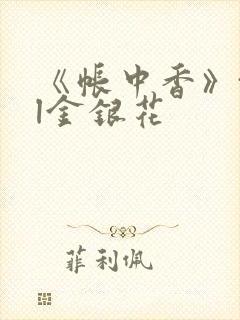 《帐中香》
|金银花
菲利佩